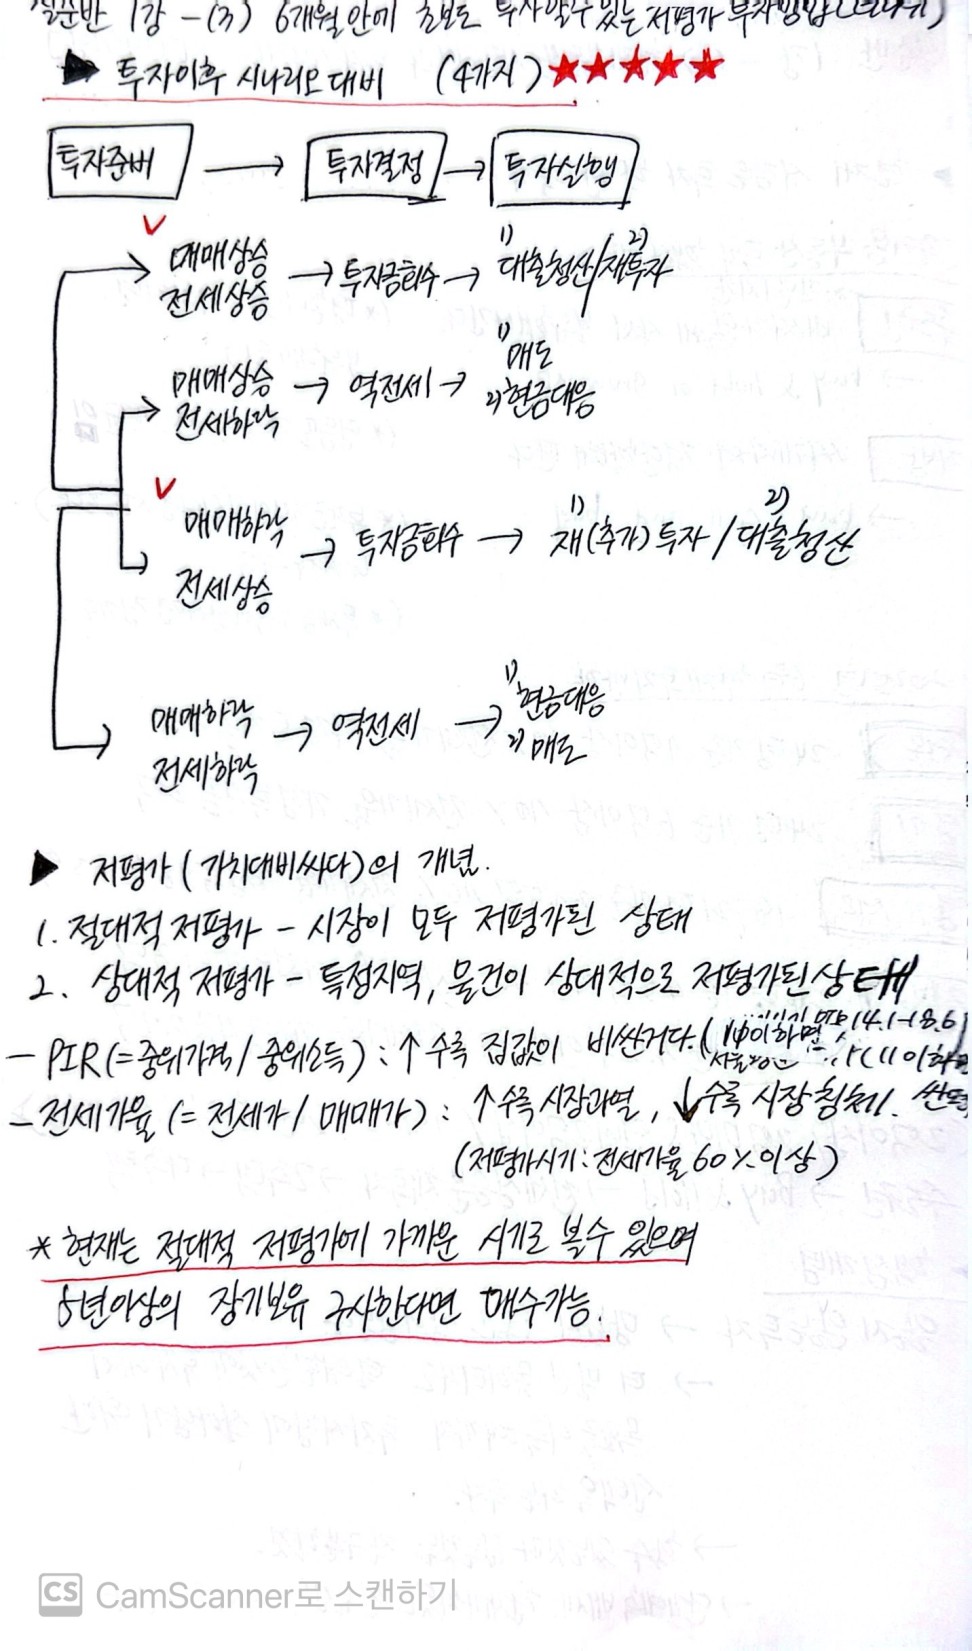 실준반 1강 - (3) 6개월안에 초보도 투자할수있는 저평가
▶ 투자이후 시나리오 대비 (4가지) ★★★★★
투자준비 → 투자결정 → 투자실행
✓
매매상승
전세상승 → 투자금회수 → 1) 대출청산 / 2) 재투자
매매상승
전세하락 → 역전세 → 1) 매도
2) 현금대응
✓
매매하락
전세상승 → 투자금회수 → 1) 재(추가)투자 / 2) 대출청산
매매하락
전세하락 → 역전세 → 1) 현금대응
2) 매도
▶ 저평가 (가치대비싸다)의 개념.
1. 절대적 저평가 - 시장이 모두 저평가된 상태
2. 상대적 저평가 - 특정지역, 물건이 상대적으로 저평가된 상태
- PIR (= 중위가격 / 중위소득) : ↑ 수록 집값이 비싼거다. (
14.1~18.6)
- 전세가율 (= 전세가 / 매매가) : ↑수록 시장과열, ↓수록 시장침체.
(저평가시기 : 전세가율 60% 이상)
* 현재는 절대적 저평가에 가까운 시기로 볼수 있으며
5년이상의 장기보유 구사한다면 매수가능.
CS CamScanner로 스캔하기